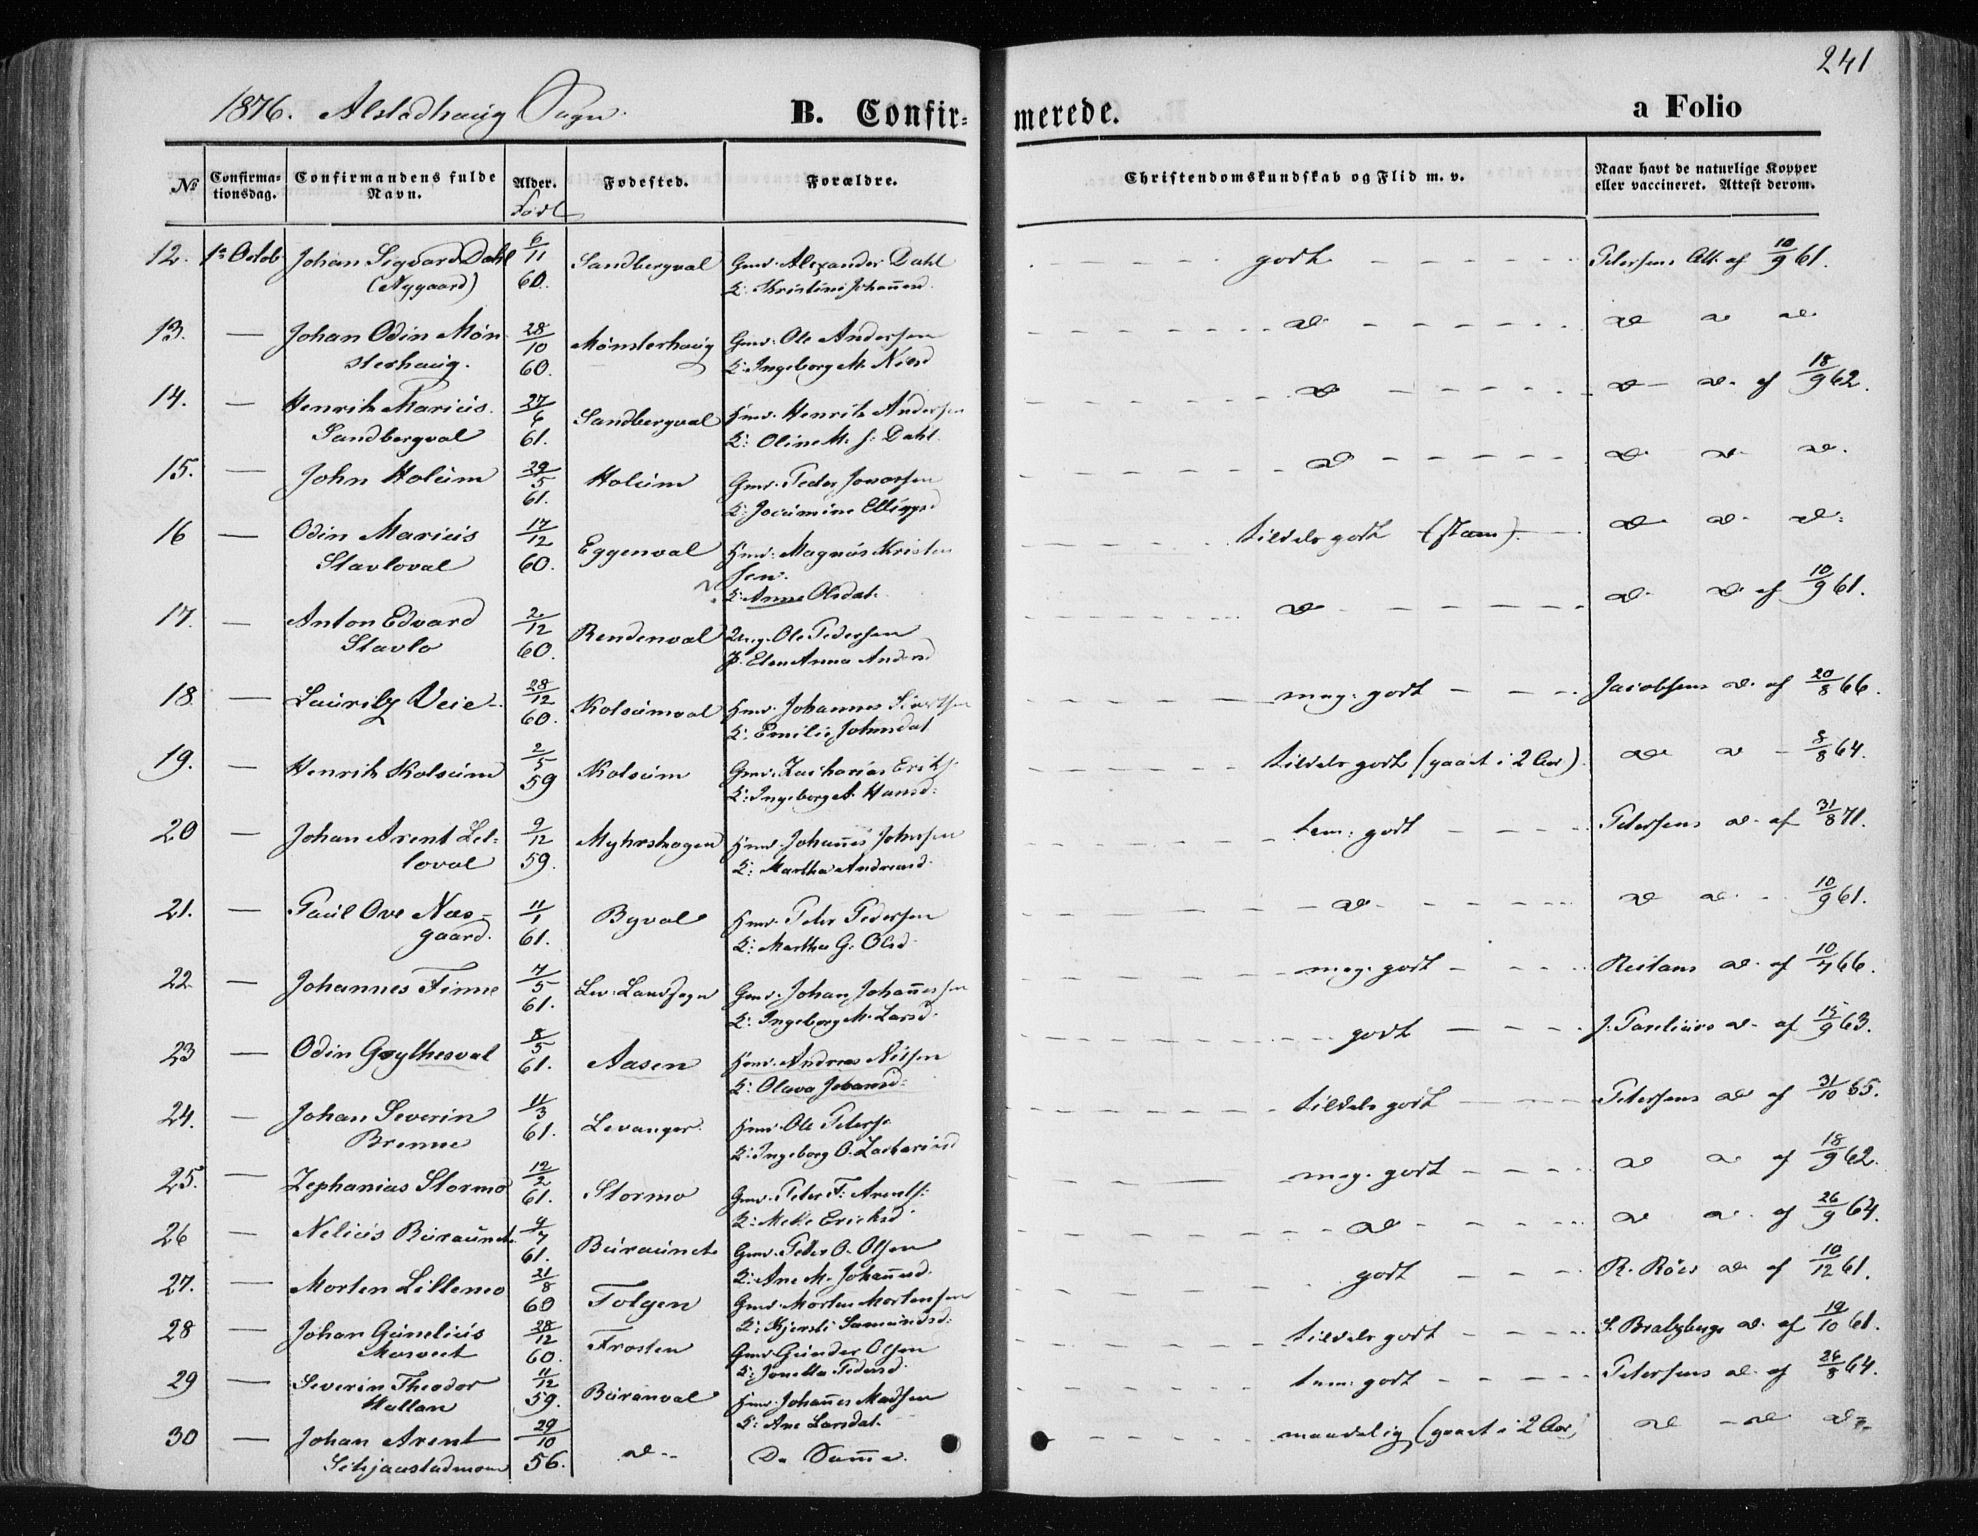 241
1876. Alstadhaug Sogn.
B. Confirmerede.
a Folio
No Confirmationsdag. Confirmandens fulde Navn. Alder. Født Fødested. Forældre. Christendomskundskab og Flid m. v. Naar havt de naturlige Kopper eller vaccineret. Attest derom.
12. 1e Octob. Johan Sigvard Dahl (Nygaard) 6/11 60. Sandbergval Gmd. Alexander Dahl K. Kristine Johannesd. godt Petersens Att. af 10/9 61.
13. — Johan Odin Mönsterhaug. 28/10 60. Mönsterhaug Gmd. Ole Andersen K. Ingeborg M. Nilsd do do do do
14. — Henrik Marius Sandbergval 27/6 61. Sandbergval Hmd. Henrik Andersen K: Oline M. J. Dahl. do do do af 18/9 62.
15. — John Holum 29/5 61. Holum Gmd. Peder Jonassen K: Jocumine Ellingsd do do do do
16 — Odin Marius Stavloval 17/12 60. Eggenval Hmd. Magnus Kristensen. K. Anne Olsdat. tildels godt (stam). do do do:
17. — Anton Edvard Stavlo 2/12 60. Rendenval Ung. Ole Pedersen P. Elen Anna Andersd do do do af 10/9 61.
18. — Lauritz Veie 28/12 60. Kolsumval Hmd. Johannes Sivertsen K: Emilie Johnsdat meg: godt Jacobsens do af 20/8 66.
19. — Henrik Kolsum 2/5 59 Kolsum Gmd. Zacharias Eriks: K: Ingeborg A. Hansd: tildels godt (gaaet i 2 Aar). do do 8/8 64.
20 — Johan Arent Letloval 9/12 59. Myhrshagen Hmd. Johannes Johnsen K: Martha Andreasd. tem: godt Petersens do af 31/8 71.
21. — Paul Ove Næsgaard. 11/1 61. Byval Hmd. Peter Pedersen K: Martha G. Olsd. do do do 10/9 61.
22. — Johannes Finne 7/5 61. Lev: Landsogn Gmd. Johan Johannessen K: Ingeborg M. Larsd. meg: godt Reitans do af 10/7 66.
23 — Odin Grythesval 8/5 61. Aasen Hmd. Andreas Nilsen K: Olava Johansd: godt J. Parelius do af 15/9 63.
24. — Johan Severin Brenne 11/3 61. Levanger. Hmd. Ole Peters. K: Ingeborg O. Zachariasd tildels godt Petersens do af 31/10 65.
25. — Zephanias Stormo 12/2 61. Stormo Gmd. Peter F. Arents: K: Mette Ericksd. meg. godt do do af 18/9 62.
26 — Nelius Buraunet. 9/7 61. Buraunet Gmd. Peter O. Olsen K: Ane M. Johannesd. do do do af 26/9 64.
27. — Morten Lillemo 21/8 60 Tolgen Gmd. Morten Mortensen K: Kjersti Samundsd: godt R. Röes do af 10/12 61.
28 — Johan Gunelius Morveet 28/12 60. Frosten Gmd Gunder Olsen K: Jonetta Pedersd. tildels godt S. Bratzbergs do af 19/10 61.
29 — Severin Theodor Hallan 11/12 59. Buranval Hmd. Johannes Madsen K: Ane Larsdat. tem: godt Petersens do af 26/8 64.
30 — Johan Arent 29/10 56. do De Samme. maadelig (gaaet i 2 Aar) do do do